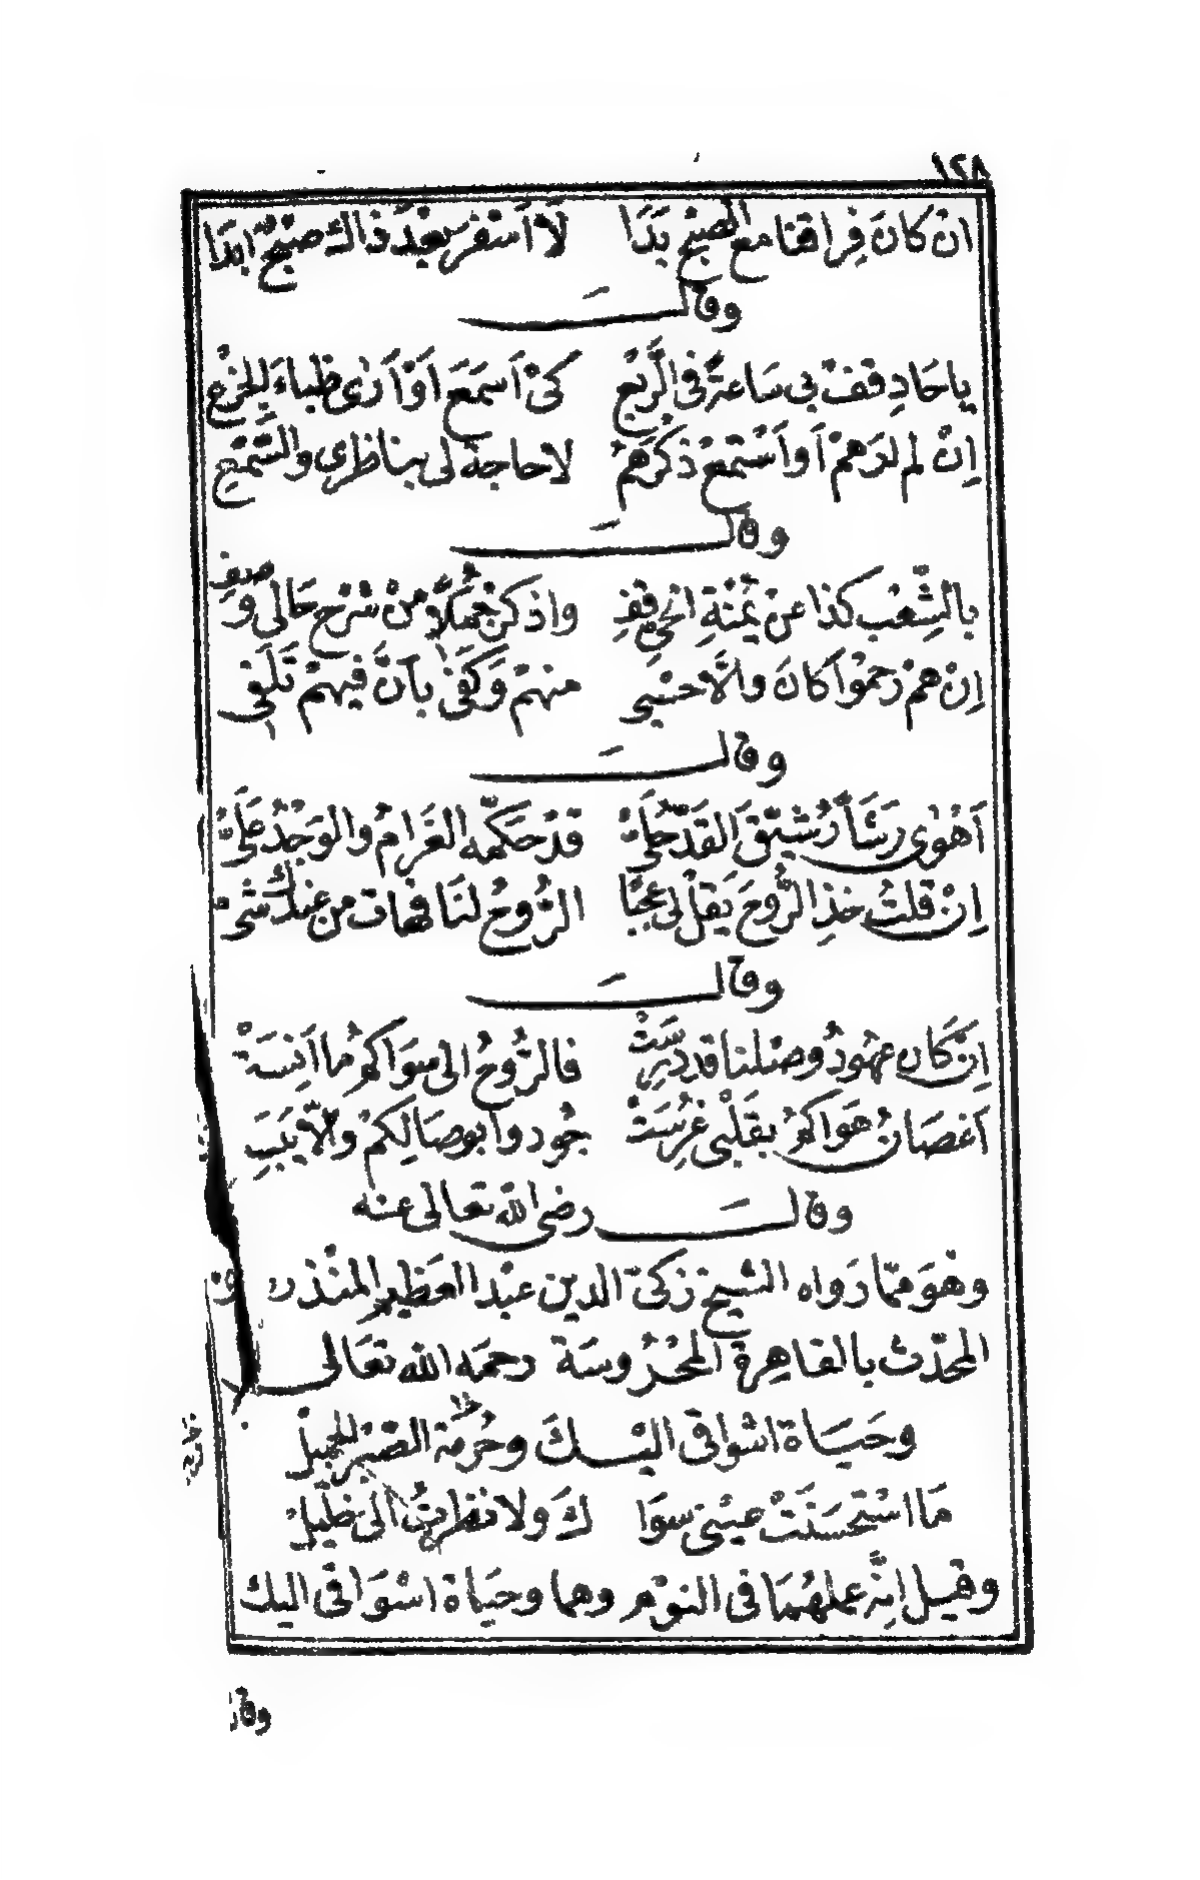 ١٢٨
ان كانَ فِراقنا مع الصبحِ بَدَا لَا اَسْفَر بَعْدَ ذاك صبحٌ ابدَا
وقالَ
يا حَادِ قفْ بى سَاعةً فى الرَّبْعِ كىْ اَسمَعَ اَوْ اَرٰى ظباءَ الجزْعِ
اِنْ لم ارَهمْ اَو اَسْتمعْ ذكرَهمُ لا حاجةَ لى بناظرى والسَّمْعِ
وقالَ
بالشِّعْب كذا عنْ يَمْنَةِ الحىِّ قفِ واذكرْ جُمَلًا منْ شَرْحِ حَالى وصفِ
اِنْ همْ رَحمُوا كانَ والَّا حسْبى منهمْ وَكَفٰى بأنَّ فيهمْ تَلَفى
وقالَ
اَهْوٰى رَشَأً رُشيّقَ القَدّ حُلَىّْ قدْ حَكّمه الغَرامُ والوَجْدُ علَىّْ
اِنْ قلتُ خذِ الرُّوحَ يَقلْ لى عجبًا الرُّوحُ لنَا فهات من عندكَ شىْ
وقالَ
اِنْ كان عهودُ وصْلنا قد دَرَسَتْ فالرُّوحُ الى سِوَاكمُ ما اَنِسَتْ
اَغصَانُ هَوَاكمُ بقَلْبى غرُسَتْ جُودوا بوصَالِكمْ والّا يَبَسِ
وقالَ رضى الله تعالى عنه
وهوَ ممّا رَواه الشيخ زكىّ الدين عبْد العَظيم المنْذرى
المحدّث بالقاهِرة المحْرُوسَة رحمَه الله تعَالى
وحَيَاة اشواقى اليْكَ وحُرمَة الصّبْرِ الجميلْ
مَا اسْتحسَنَتْ عيْنى سوَا كَ ولا نظرتُ الى خليلْ
وقيل اِنّه عملهُمَا فى النوْم وهما وحيَاة اشْوَاقى اليك